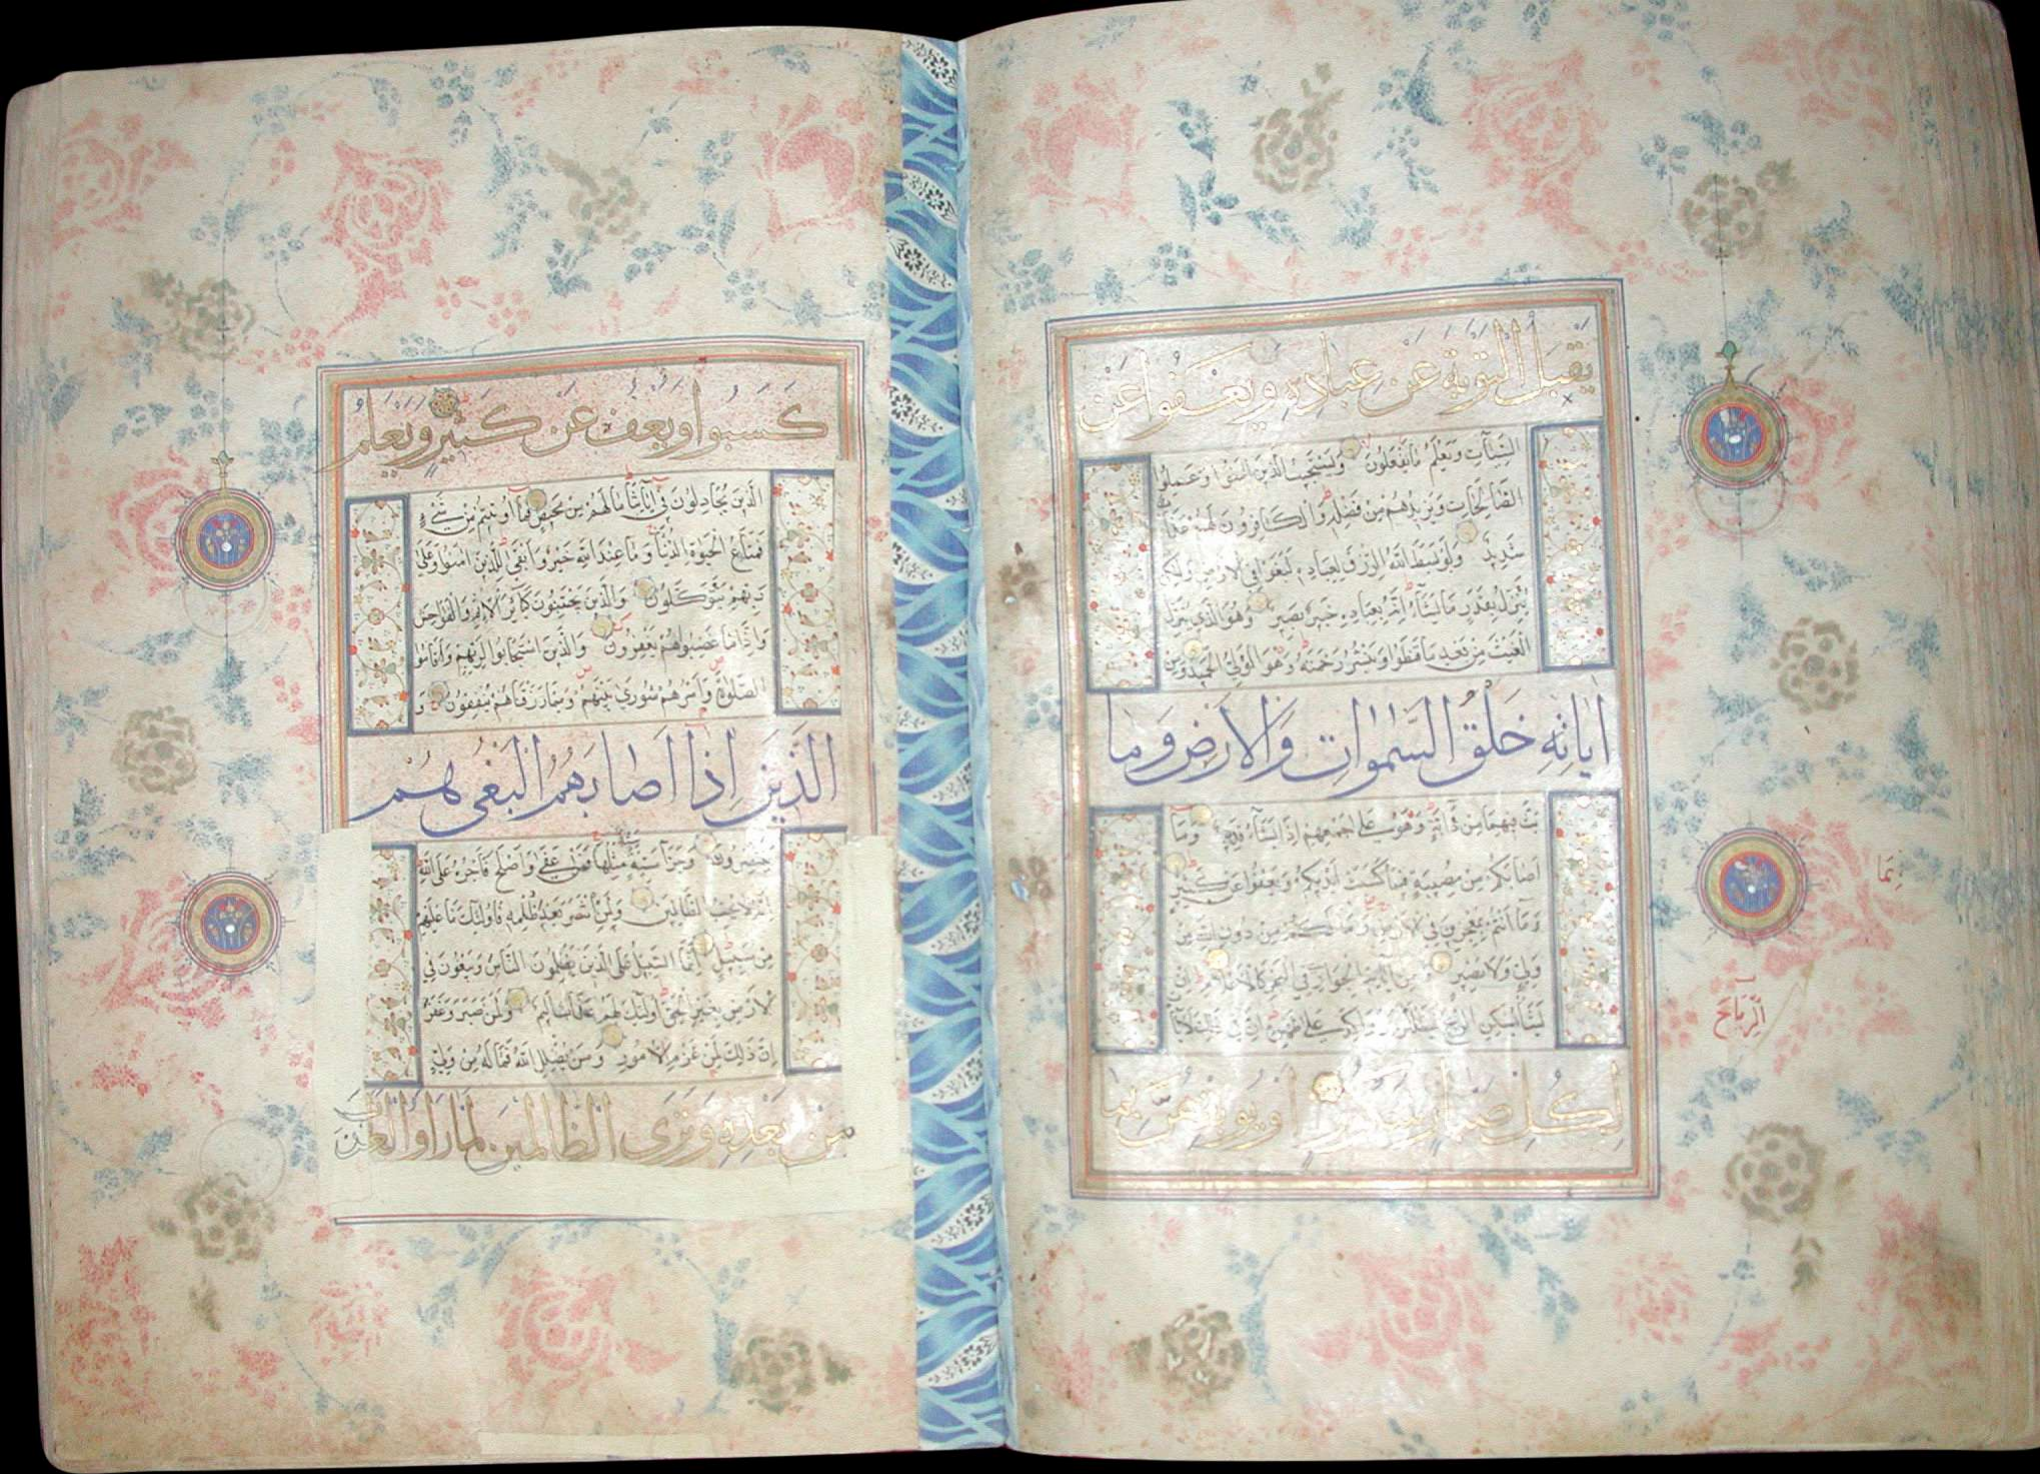 يَقْبَلُ التَّوْبَةَ عَنْ عِبَادِهِ وَيَعْفُوا عَنْ
السَّيِّئَاتِ وَيَعْلَمُ مَا تَفْعَلُونَ وَيَسْتَجِيبُ الَّذِينَ آمَنُوا وَعَمِلُوا
الصَّالِحَاتِ وَيَزِيدُهُمْ مِنْ فَضْلِهِ وَالْكَافِرُونَ لَهُمْ عَذَابٌ
شَدِيدٌ وَلَوْ بَسَطَ اللَّهُ الرِّزْقَ لِعِبَادِهِ لَبَغَوْا فِي الْأَرْضِ وَلَكِنْ
يُنَزِّلُ بِقَدَرٍ مَا يَشَاءُ إِنَّهُ بِعِبَادِهِ خَبِيرٌ بَصِيرٌ وَهُوَ الَّذِي يُنَزِّلُ
الْغَيْثَ مِنْ بَعْدِ مَا قَنَطُوا وَيَنْشُرُ رَحْمَتَهُ وَهُوَ الْوَلِيُّ الْحَمِيدُ وَمِنْ
ايَاتِهِ خَلْقُ السَّمٰوَاتِ وَالْاَرْضِ وَمَا
بَثَّ فِيهِمَا مِنْ دَابَّةٍ وَهُوَ عَلَى جَمْعِهِمْ إِذَا يَشَاءُ قَدِيرٌ وَمَا
أَصَابَكُمْ مِنْ مُصِيبَةٍ فَبِمَا كَسَبَتْ أَيْدِيكُمْ وَيَعْفُوا عَنْ كَثِيرٍ
وَمَا أَنْتُمْ بِمُعْجِزِينَ فِي الْأَرْضِ وَمَا لَكُمْ مِنْ دُونِ اللَّهِ مِنْ
وَلِيٍّ وَلَا نَصِيرٍ وَمِنْ آيَاتِهِ الْجَوَارِ فِي الْبَحْرِ كَالْأَعْلَامِ إِنْ
يَشَأْ يُسْكِنِ الرِّيحَ فَيَظْلَلْنَ رَوَاكِدَ عَلَى ظَهْرِهِ إِنَّ فِي ذَلِكَ لَآيَاتٍ
لِكُلِّ صَبَّارٍ شَكُورٍ اَوْ يُوبِقْهُنَّ بِمَا
بِمَا
الرِّيَاحَ
كَسَبُوا وَيَعْفُ عَنْ كَثِيرٍ وَيَعْلَمَ
الَّذِينَ يُجَادِلُونَ فِي آيَاتِنَا مَا لَهُمْ مِنْ مَحِيصٍ فَمَا أُوتِيتُمْ مِنْ شَيْءٍ
فَمَتَاعُ الْحَيٰوةِ الدُّنْيَا وَمَا عِنْدَ اللَّهِ خَيْرٌ وَأَبْقَى لِلَّذِينَ آمَنُوا وَعَلَى
رَبِّهِمْ يَتَوَكَّلُونَ وَالَّذِينَ يَجْتَنِبُونَ كَبَائِرَ الْإِثْمِ وَالْفَوَاحِشَ
وَإِذَا مَا غَضِبُوا هُمْ يَغْفِرُونَ وَالَّذِينَ اسْتَجَابُوا لِرَبِّهِمْ وَأَقَامُوا
الصَّلٰوةَ وَأَمْرُهُمْ شُورَى بَيْنَهُمْ وَمِمَّا رَزَقْنَاهُمْ يُنْفِقُونَ وَ
الَّذِينَ اِذَا اَصَابَهُمُ الْبَغْيُ هُمْ
يَنْتَصِرُونَ وَجَزَاءُ سَيِّئَةٍ سَيِّئَةٌ مِثْلُهَا فَمَنْ عَفَى وَأَصْلَحَ فَأَجْرُهُ عَلَى اللَّهِ
إِنَّهُ لَا يُحِبُّ الظَّالِمِينَ وَلَمَنِ انْتَصَرَ بَعْدَ ظُلْمِهِ فَأُولَئِكَ مَا عَلَيْهِمْ
مِنْ سَبِيلٍ إِنَّمَا السَّبِيلُ عَلَى الَّذِينَ يَظْلِمُونَ النَّاسَ وَيَبْغُونَ فِي
الْأَرْضِ بِغَيْرِ الْحَقِّ أُولَئِكَ لَهُمْ عَذَابٌ أَلِيمٌ وَلَمَنْ صَبَرَ وَغَفَرَ
إِنَّ ذَلِكَ لَمِنْ عَزْمِ الْأُمُورِ وَمَنْ يُضْلِلِ اللَّهُ فَمَا لَهُ مِنْ وَلِيٍّ
مِنْ بَعْدِهِ وَتَرَى الظَّالِمِينَ لَمَّا رَاَوُا الْعَذَابَ